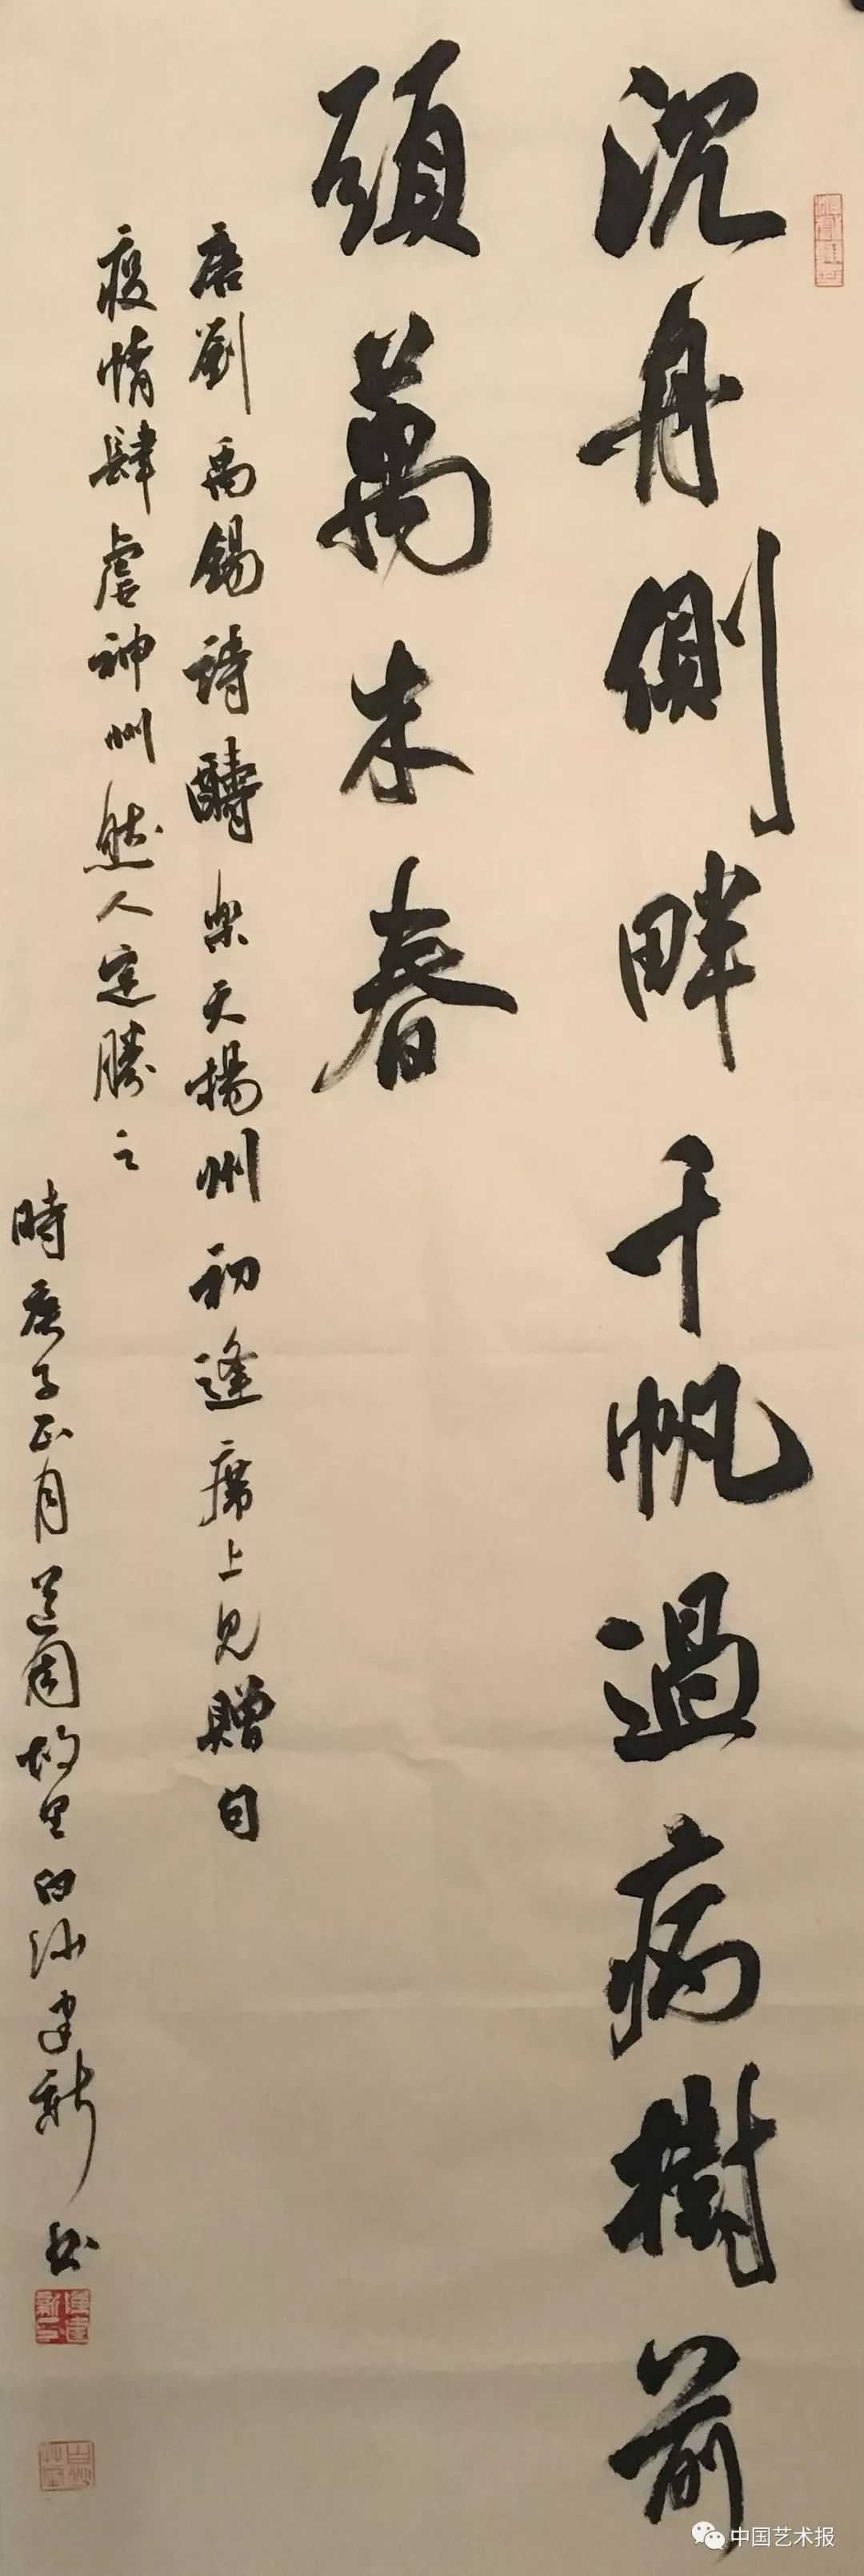 沉舟側畔千帆過病樹前
頭萬木春
唐劉禹錫詩酬樂天揚州初逢席上見贈句
疫情肆虐神州然人定勝之
時庚子正月蘭故里白沙建新書
中国艺术报